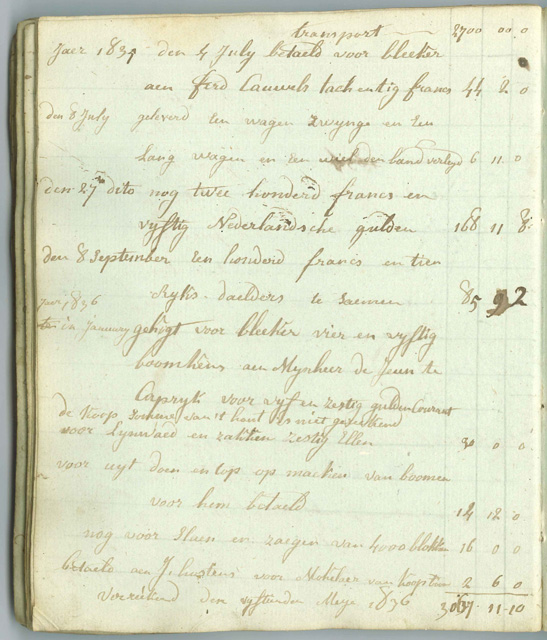 transport 2700 00 0
Jaer 1835 den 4 July betaeld voor bleeker
aen ferd Cauwels tachentig francs 44 2 0
den 8 July geleverd een wagen zwynge en een
Lang wagen en een band verleyd 6 11 0
den 27 dito nog twee honderd francs en
vyftig Nederlandsche gulden 168 11 8
den 8 September een honderd francs en tien
ryks daelders te saemen 85 9 2
Jaer 1836
in January voor bleeker vier en vyftig
boomkens aen Mynheer de te
Capryk voor vyf en zestig gulden Courant
de koop somme van't hout is niet
voor Lynwaed en zakken zestig Ellen 30 0 0
voor uyt doen en top op macken van boomen
voor hem betaeld 14 12 0
nog voor slaen en zaegen van 4000 blokken 16 0 0
betaeld aen J voor van 2 6 0
den vyfthienden Meye 1836 3067 11-10